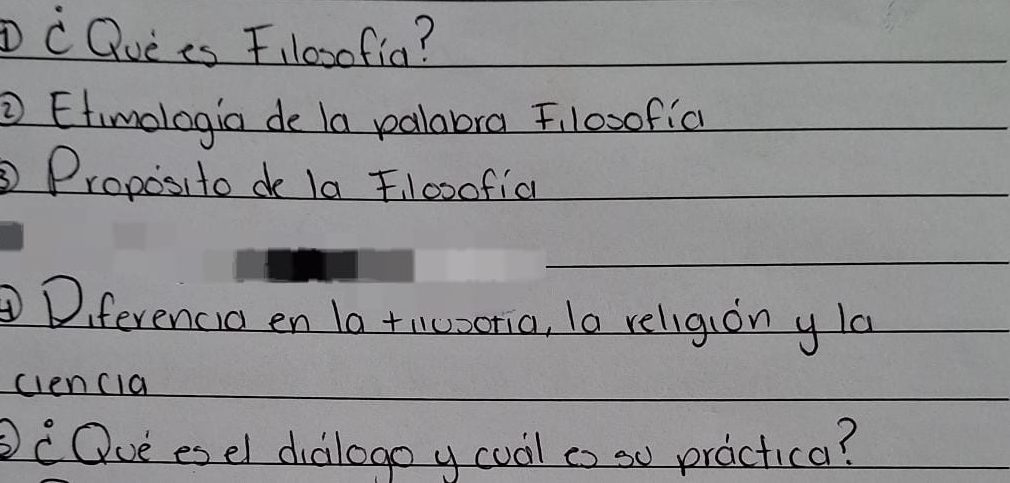 ① ¿Qué es Filosofía?
② Etimología de la palabra Filosofía
③ Propósito de la Filosofía
④ Diferencia en la filosofía, la religión y la
ciencia
⑤ ¿Qué es el diálogo y cuál es su práctica?